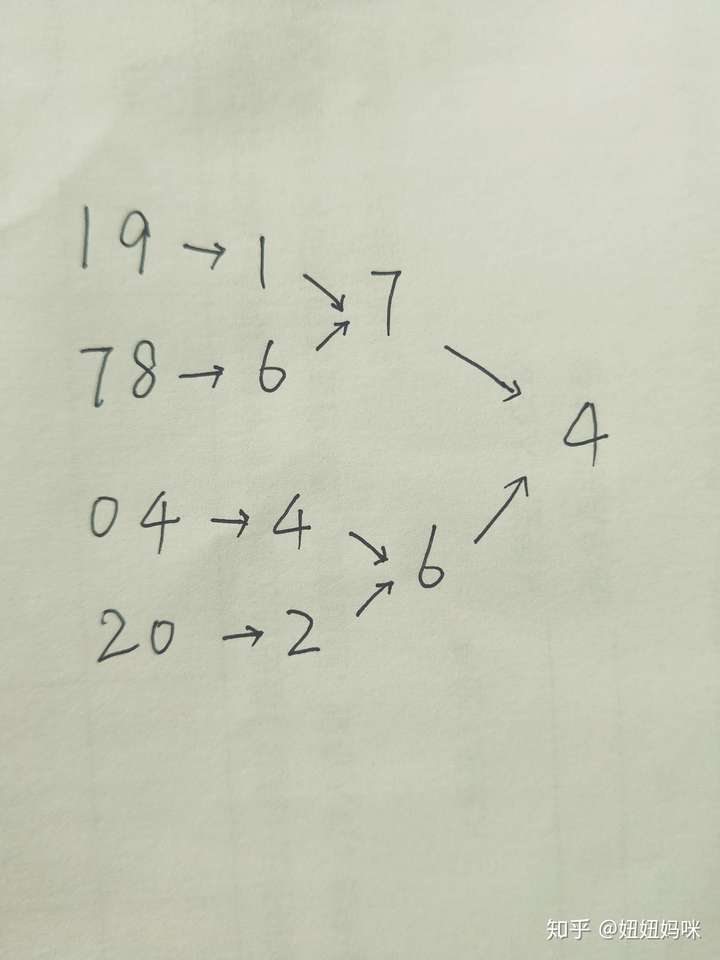 19→1
7
78→6
4
04→4
6
20→2
知乎 @妞妞妈咪